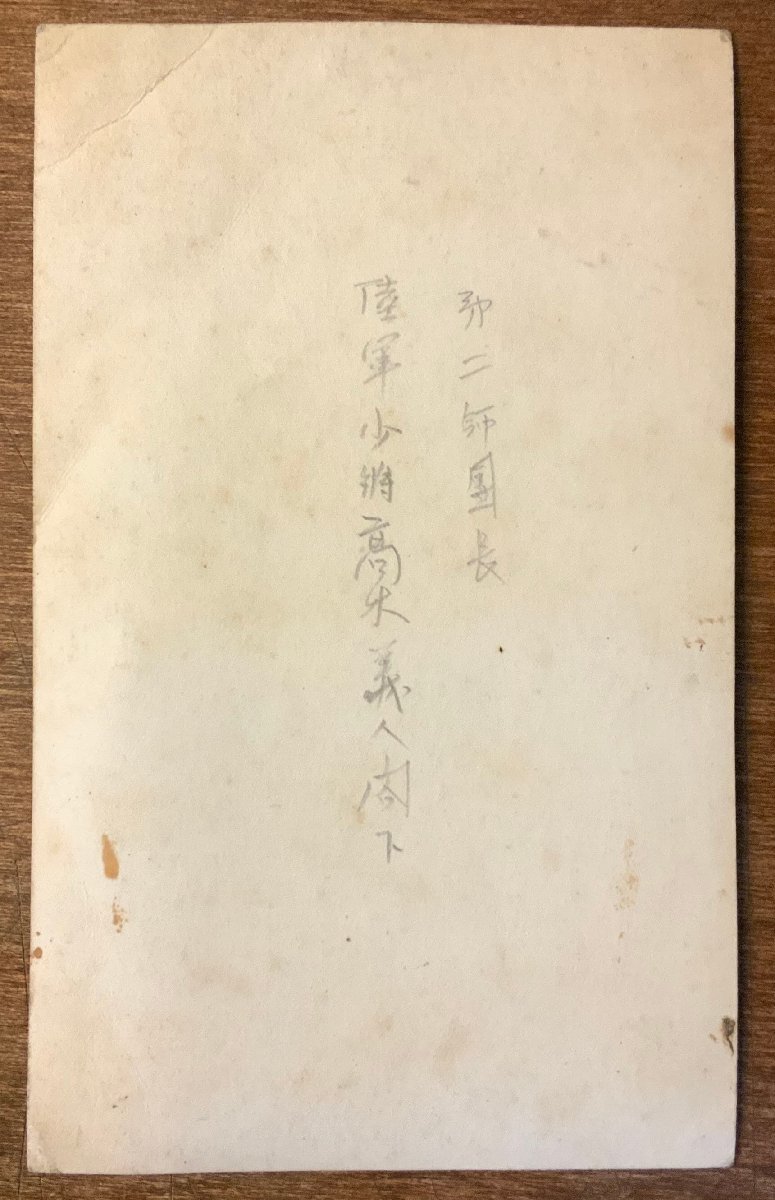 第二師團長
陸軍少将高木義人閣下